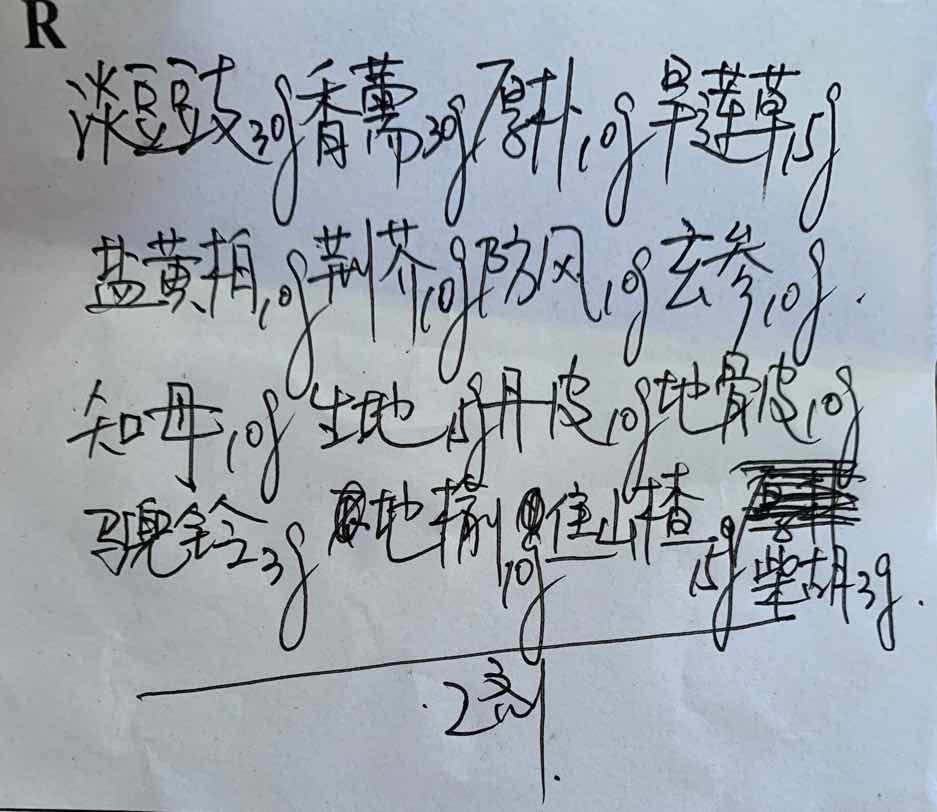 R
淡豆豉30g香薷30g厚朴10g旱莲草15g
盐黄柏10g荆芥10g防风10g玄参10g.
知母10g生地15g丹皮10g地骨皮10g
马兜铃3g地榆10g佳山楂15g柴胡3g.
2剂